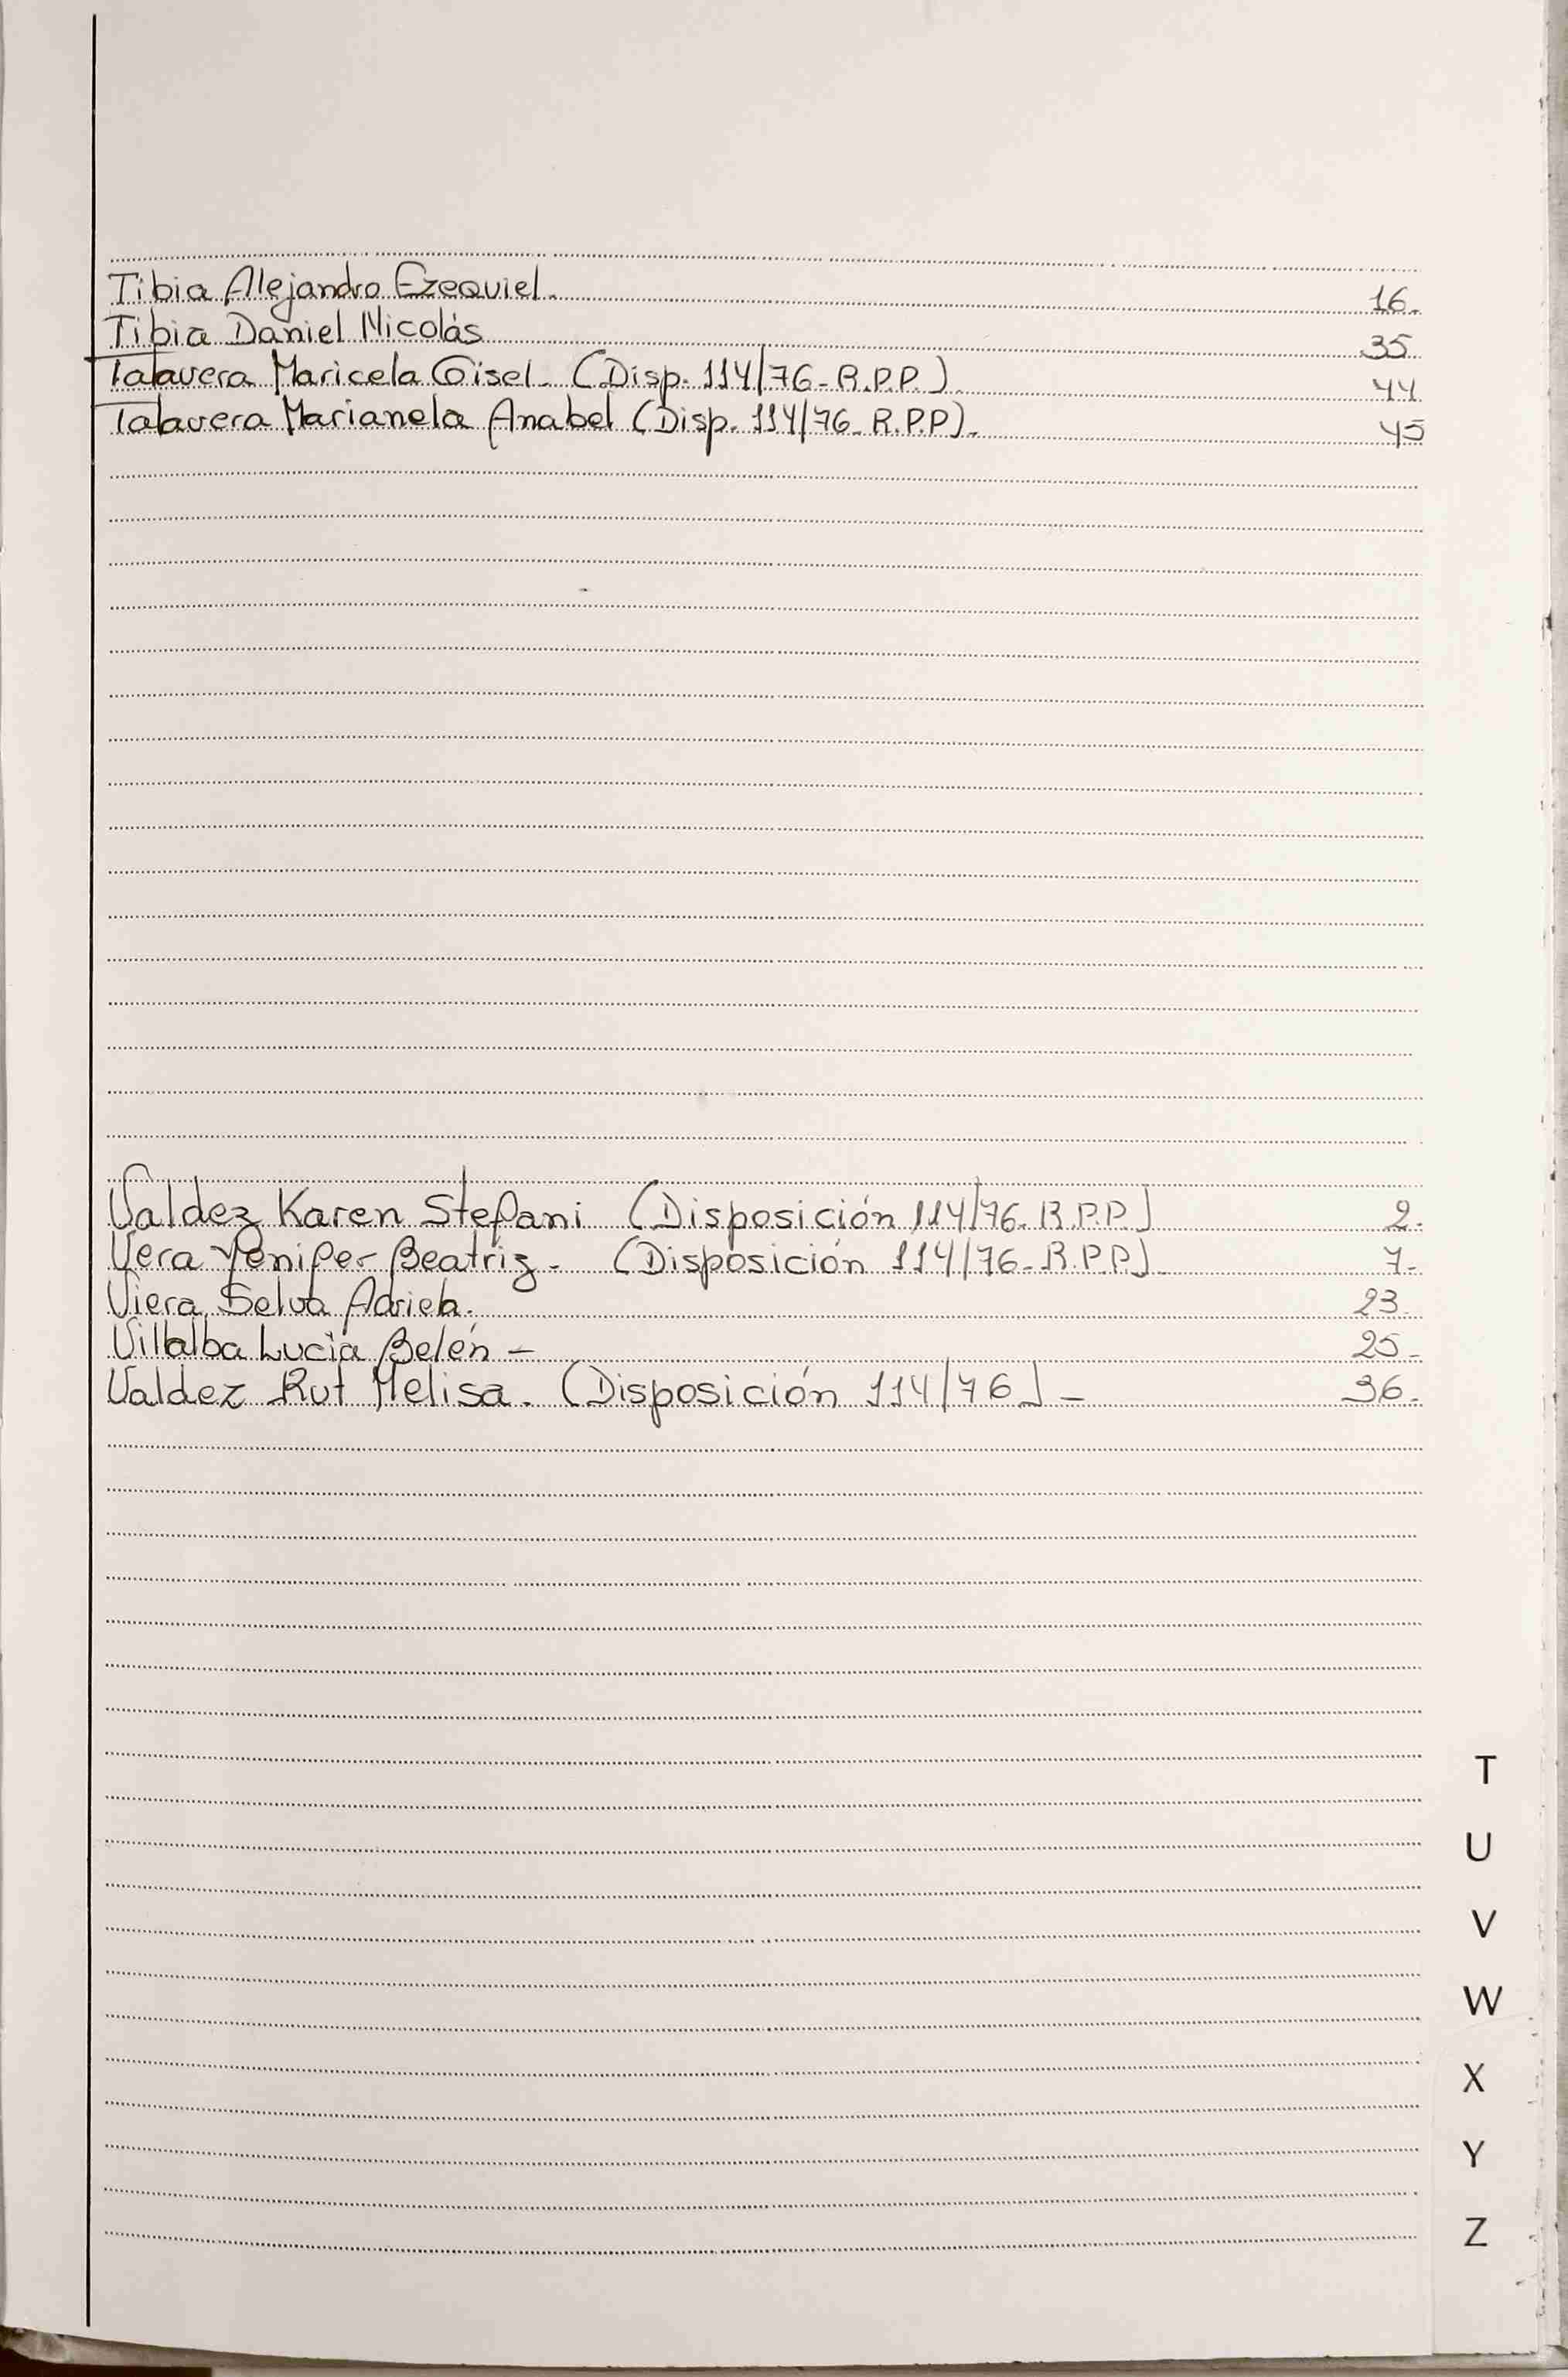 Tibia Alejandro Ezequiel. 16.
Tibia Daniel Nicolás 35
Talavera Maricela Gisel. (Disp. 114/76-R.P.P.) 44
Talavera Marianela Anabel (Disp. 114/76-R.P.P). 45
Valdez Karen Stefani (Disposición 114/76-R.P.P.) 2.
Vera Yenifer Beatriz. (Disposición 114/76-R.P.P) 7.
Viera Selva Adriela. 23.
Villalba Lucía Belén - 25-
Valdez Rut Melisa. (Disposición 114/76) - 36.
T
U
V
W
X
Y
Z